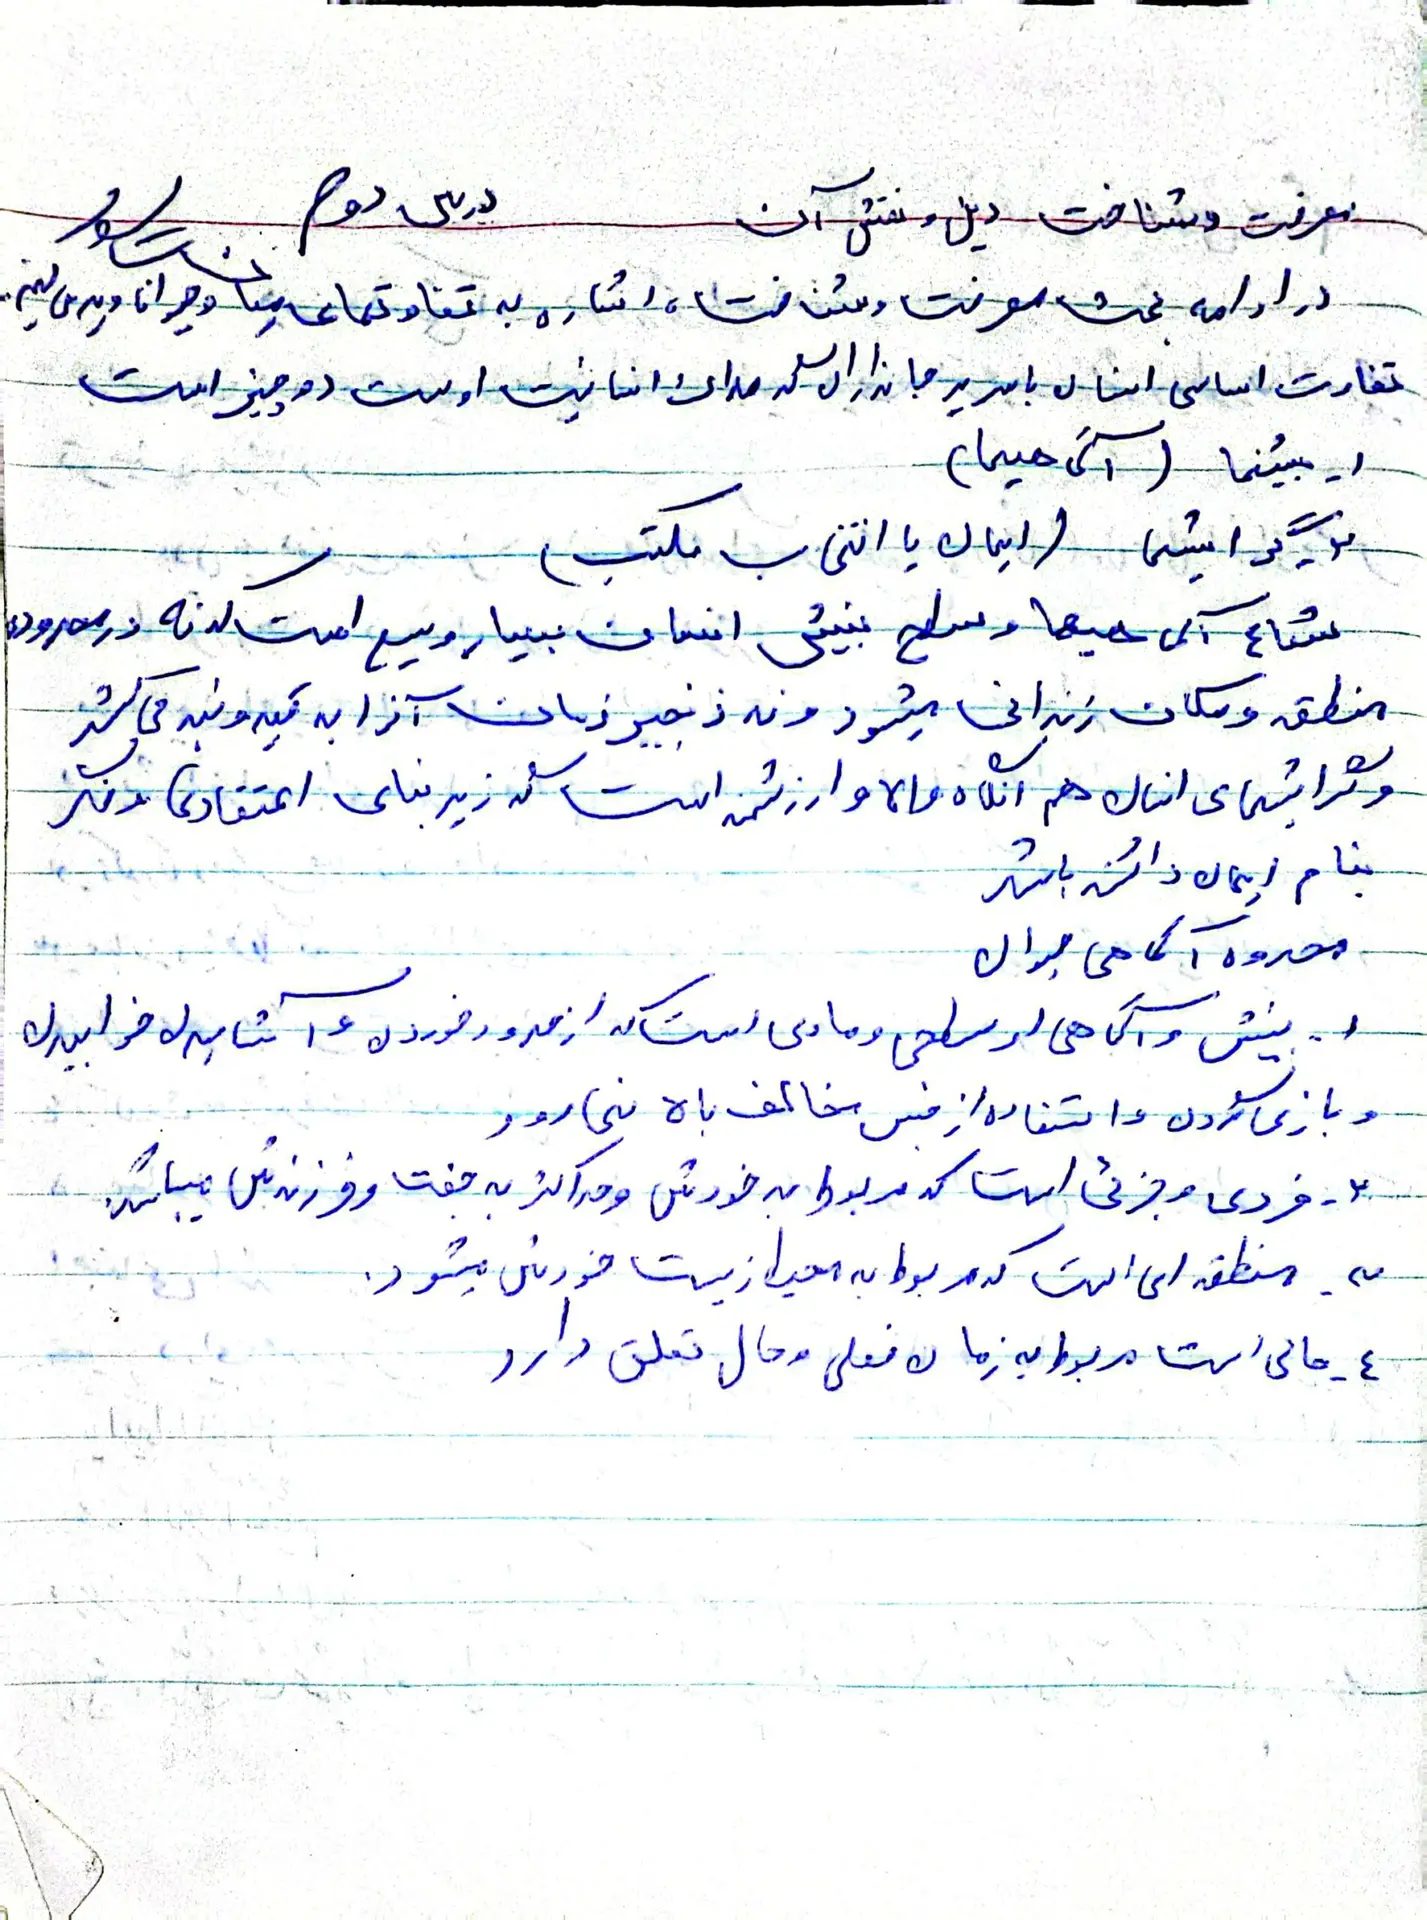 معرفت و شناخت دلیل و نقش آن درس دوم
در ادامه بحث معرفت و شناخت، اشاره به تفاوتهای میان و حیوانات دیگر می کنیم.
تفاوت اساسی انسان با دیگر جانداران که ملاک انسانیت اوست دو چیز است
۱ـ بینشها (آگاهیها)
۲ـ گرایشها (ایمان یا انتخاب مکتب)
شعاع آگاهیها و سطح بینش انسان بسیار وسیع است که نه در محدوده
منطقه و مکان زندانی میشود و نه زنجیر زمان آنرا به قید و بند می کشد
و گرایشهای انسان هم آنگاه والا و ارزشمند است که زیر بنای اعتقادی و فکر
بنام ایمان داشته باشد
محدوده آگاهی حیوان
۱ـ بینش و آگاهی او سطحی و مادی است که از حدود خوردن و آشامیدن خوابیدن
و بازی کردن و استفاده از جنس مخالف بالا نمی رود
۲ـ فردی و جزئی است که مربوط به خودش و حداکثر به جفت و فرزندش میباشد.
۳ـ منطقه ای است که مربوط به محیط زیست خودش میشود.
٤ـ حالی است مربوط به زمان فعلی و حال تعلق دارد